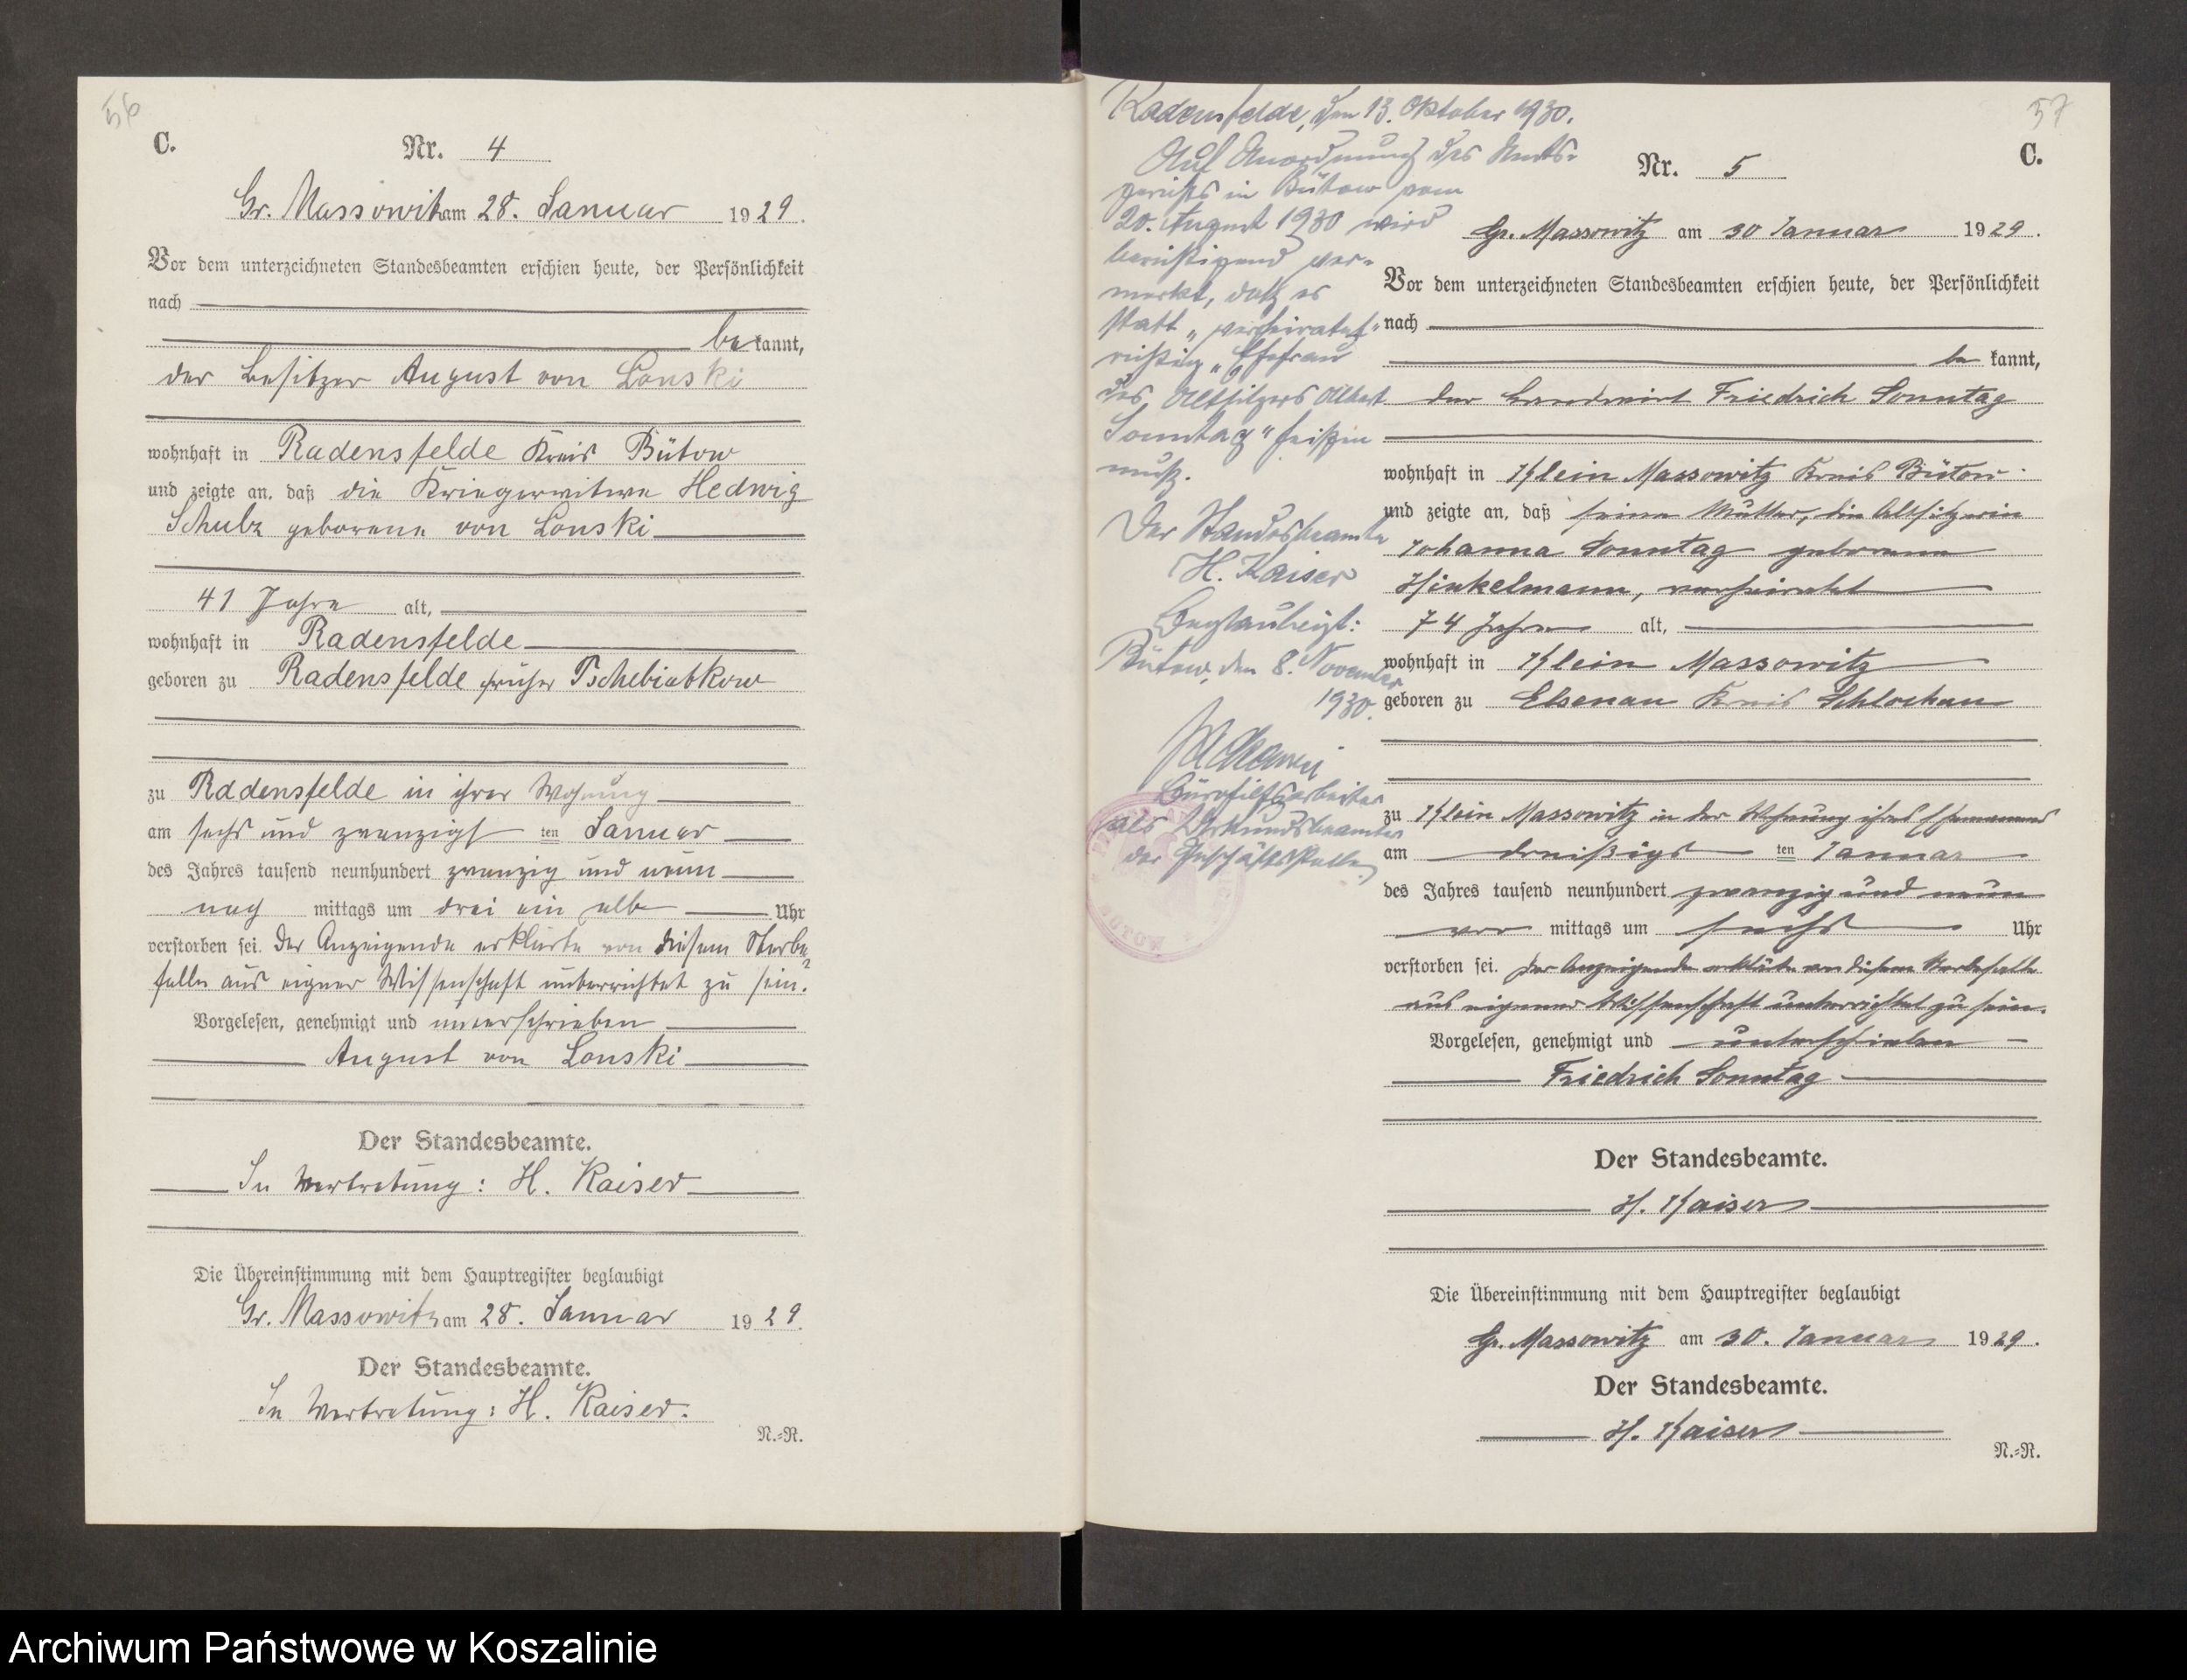 56
C.
Nr. 4
Gr. Massowitz am 28. Januar 1929.
Vor dem unterzeichneten Standesbeamten erschien heute, der Persönlichkeit
nach
bekannt,
der Besitzer August von Lonski
wohnhaft in Radensfelde Kreis Bütow
und zeigte an, daß die Kriegerwitwe Hedwig
Schulz geborene von Lonski
41 Jahre alt,
wohnhaft in Radensfelde
geboren zu Radensfelde früher Tschebiatkow
zu Radensfelde in ihrer Wohnung
am sechs und zwanzigst ten Januar
des Jahres tausend neunhundert zwanzig und neun
nach mittags um drei ein halb Uhr
verstorben sei. Der Anzeigende erklärte von diesem Sterbe
falle aus eigner Wissenschaft unterrichtet zu sein.
Vorgelesen, genehmigt und unterschrieben
August von Lonski
Der Standesbeamte.
In Vertretung: H. Kaiser
Die Übereinstimmung mit dem Hauptregister beglaubigt
Gr. Massowitz am 28. Januar 1929.
Der Standesbeamte.
In Vertretung: H. Kaiser.
N.=R.
Radensfelde, den 13. Oktober 1930.
Auf Anordnung des Amts-
gerichts in Bütow vom
20. August 1930 wird
berichtigend ver-
merkt, daß es
statt „verheiratet“
richtig „Ehefrau
des Altsitzers Albert
Sonntag“ heißen
muß.
Der Standesbeamte
H. Kaiser
Beglaubigt:
Bütow, den 8. November
1930.
Bürohilfsarbeiter
als Urkundsbeamter
der Geschäftsstelle
BÜTOW
57
C.
Nr. 5
Gr. Massowitz am 30 Januar 1929.
Vor dem unterzeichneten Standesbeamten erschien heute, der Persönlichkeit
nach
be kannt,
der Landwirt Friedrich Sonntag
wohnhaft in Klein Massowitz Kreis Bütow
und zeigte an, daß seine Mutter, die Altsitzerin
Johanna Sonntag geborene
Hinkelmann, verheiratet
74 Jahre alt,
wohnhaft in Klein Massowitz
geboren zu Elsenau Kreis Schlochau
zu Klein Massowitz in der Wohnung ihres Ehemannes
am dreißigs ten Januar
des Jahres tausend neunhundert zwanzig und neun
vor mittags um sechs Uhr
verstorben sei. Der Anzeigende erklärte von diesem Sterbefalle
aus eigener Wissenschaft unterrichtet zu sein.
Vorgelesen, genehmigt und unterschrieben
Friedrich Sonntag
Der Standesbeamte.
H. Kaiser
Die Übereinstimmung mit dem Hauptregister beglaubigt
Gr. Massowitz am 30. Januar 1929.
Der Standesbeamte.
H. Kaiser
N.=R.
Archiwum Państwowe w Koszalinie